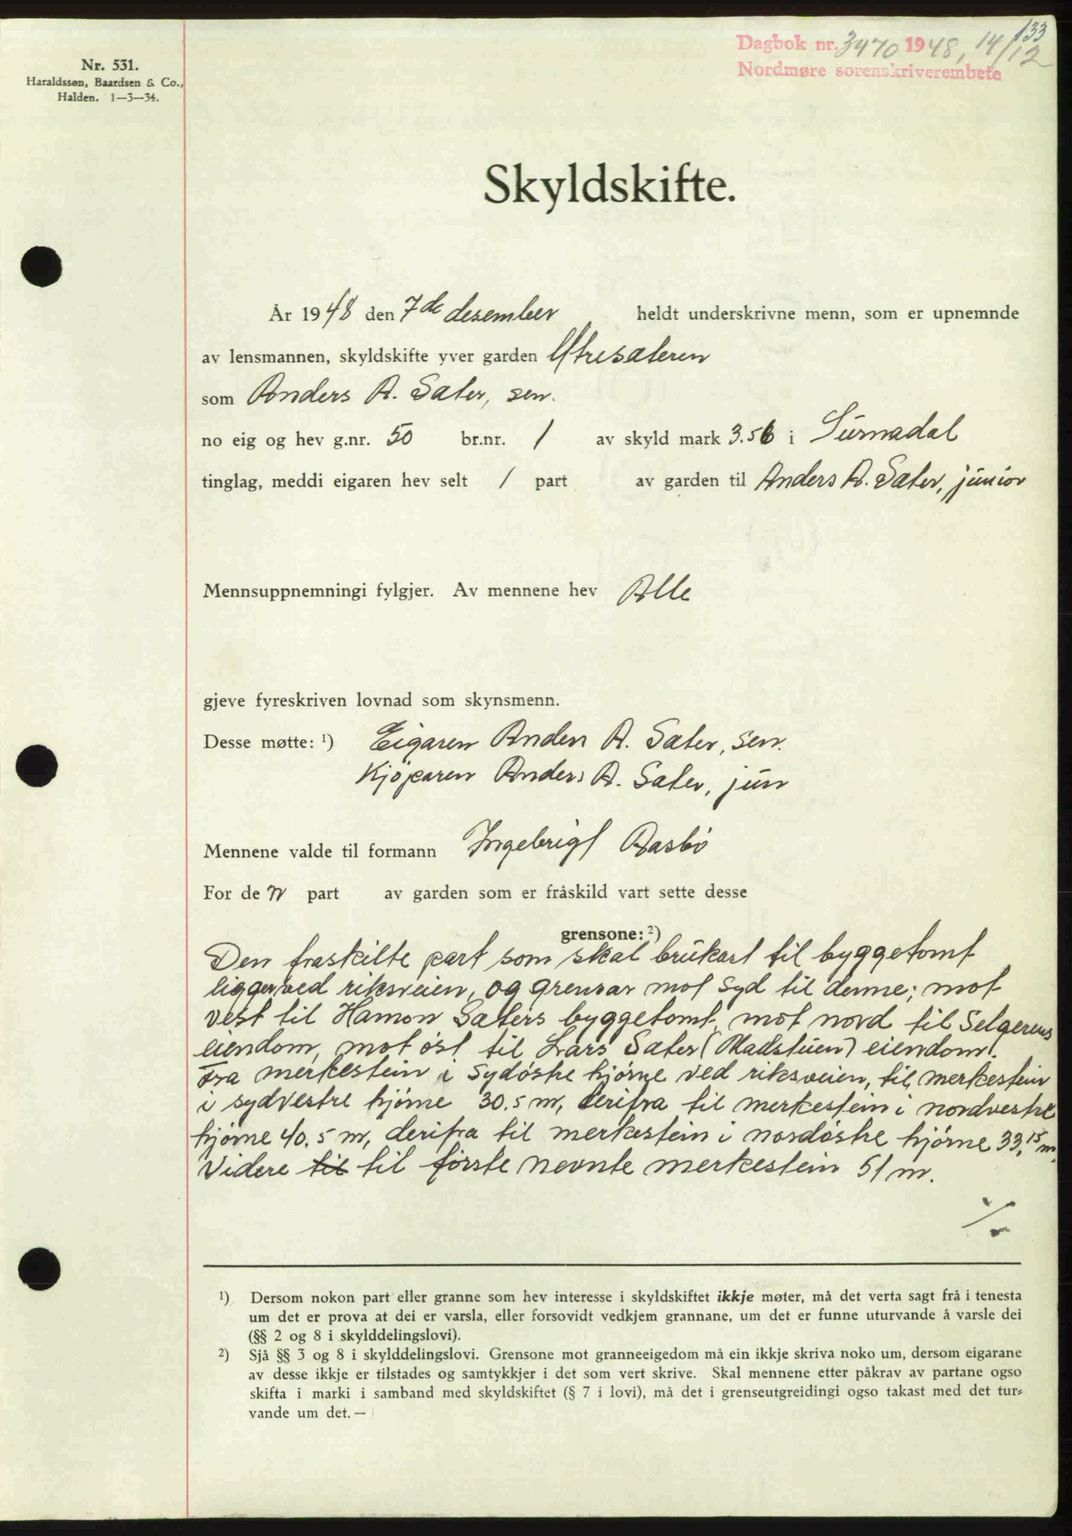 133
Dagbok nr. 3470 1948, 14/12
Nordmøre sorenskriverembete
Nr. 531.
Haraldssøn, Baardsen & Co.,
Halden. 1—3—34.
Skyldskifte.
År 1948 den 7de desember heldt underskrivne menn, som er upnemnde
av lensmannen, skyldskifte yver garden Ytresæteren
som Anders A. Sæter, sen.
no eig og hev g.nr. 50 br.nr. 1 av skyld mark 3.56 i Surnadal
tinglag, meddi eigaren hev selt 1 part av garden til Anders A. Sæter, junior
Mennsuppnemningi fylgjer. Av mennene hev Alle
gjeve fyreskriven lovnad som skynsmenn.
Desse møtte: ¹) Eigaren Anders A. Sæter, sen.
Kjøparen Anders A. Sæter, jun
Mennene valde til formann Ingebrigt Aasbø
For de n part av garden som er fråskild vart sette desse
grensone: ²)
Den fraskilte part som skal brukast til byggetomt
ligger ved riksveien, og grensar mot syd til denne; mot
vest til Hamon Sæters byggetomt, mot nord til Selgerens
eiendom, mot øst til Lars Sæter (Madsteien) eiendom.
Fra merkestein i sydøstre hjørne ved riksveien, til merkestein
i sydvestre hjørne 30.5 m, derifra til merkestein i nordvestre
hjørne 40.5 m, derifra til merkestein i nordøstre hjørne 33,15 m.
Videre til til første nevnte merkestein 51 m.
./.
¹) Dersom nokon part eller granne som hev interesse i skyldskiftet ikkje møter, må det verta sagt frå i tenesta
um det er prova at dei er varsla, eller forsovidt vedkjem grannane, um det er funne uturvande å varsle dei
(§§ 2 og 8 i skylddelingslovi).
²) Sjå §§ 3 og 8 i skylddelingslovi. Grensone mot granneeigedom må ein ikkje skriva noko um, dersom eigarane
av desse ikkje er tilstades og samtykkjer i det som vert skrive. Skal mennene etter påkrav av partane ogso
skifta i marki i samband med skyldskiftet (§ 7 i lovi), må det i grenseutgreidingi ogso takast med det tur-
vande um det. —